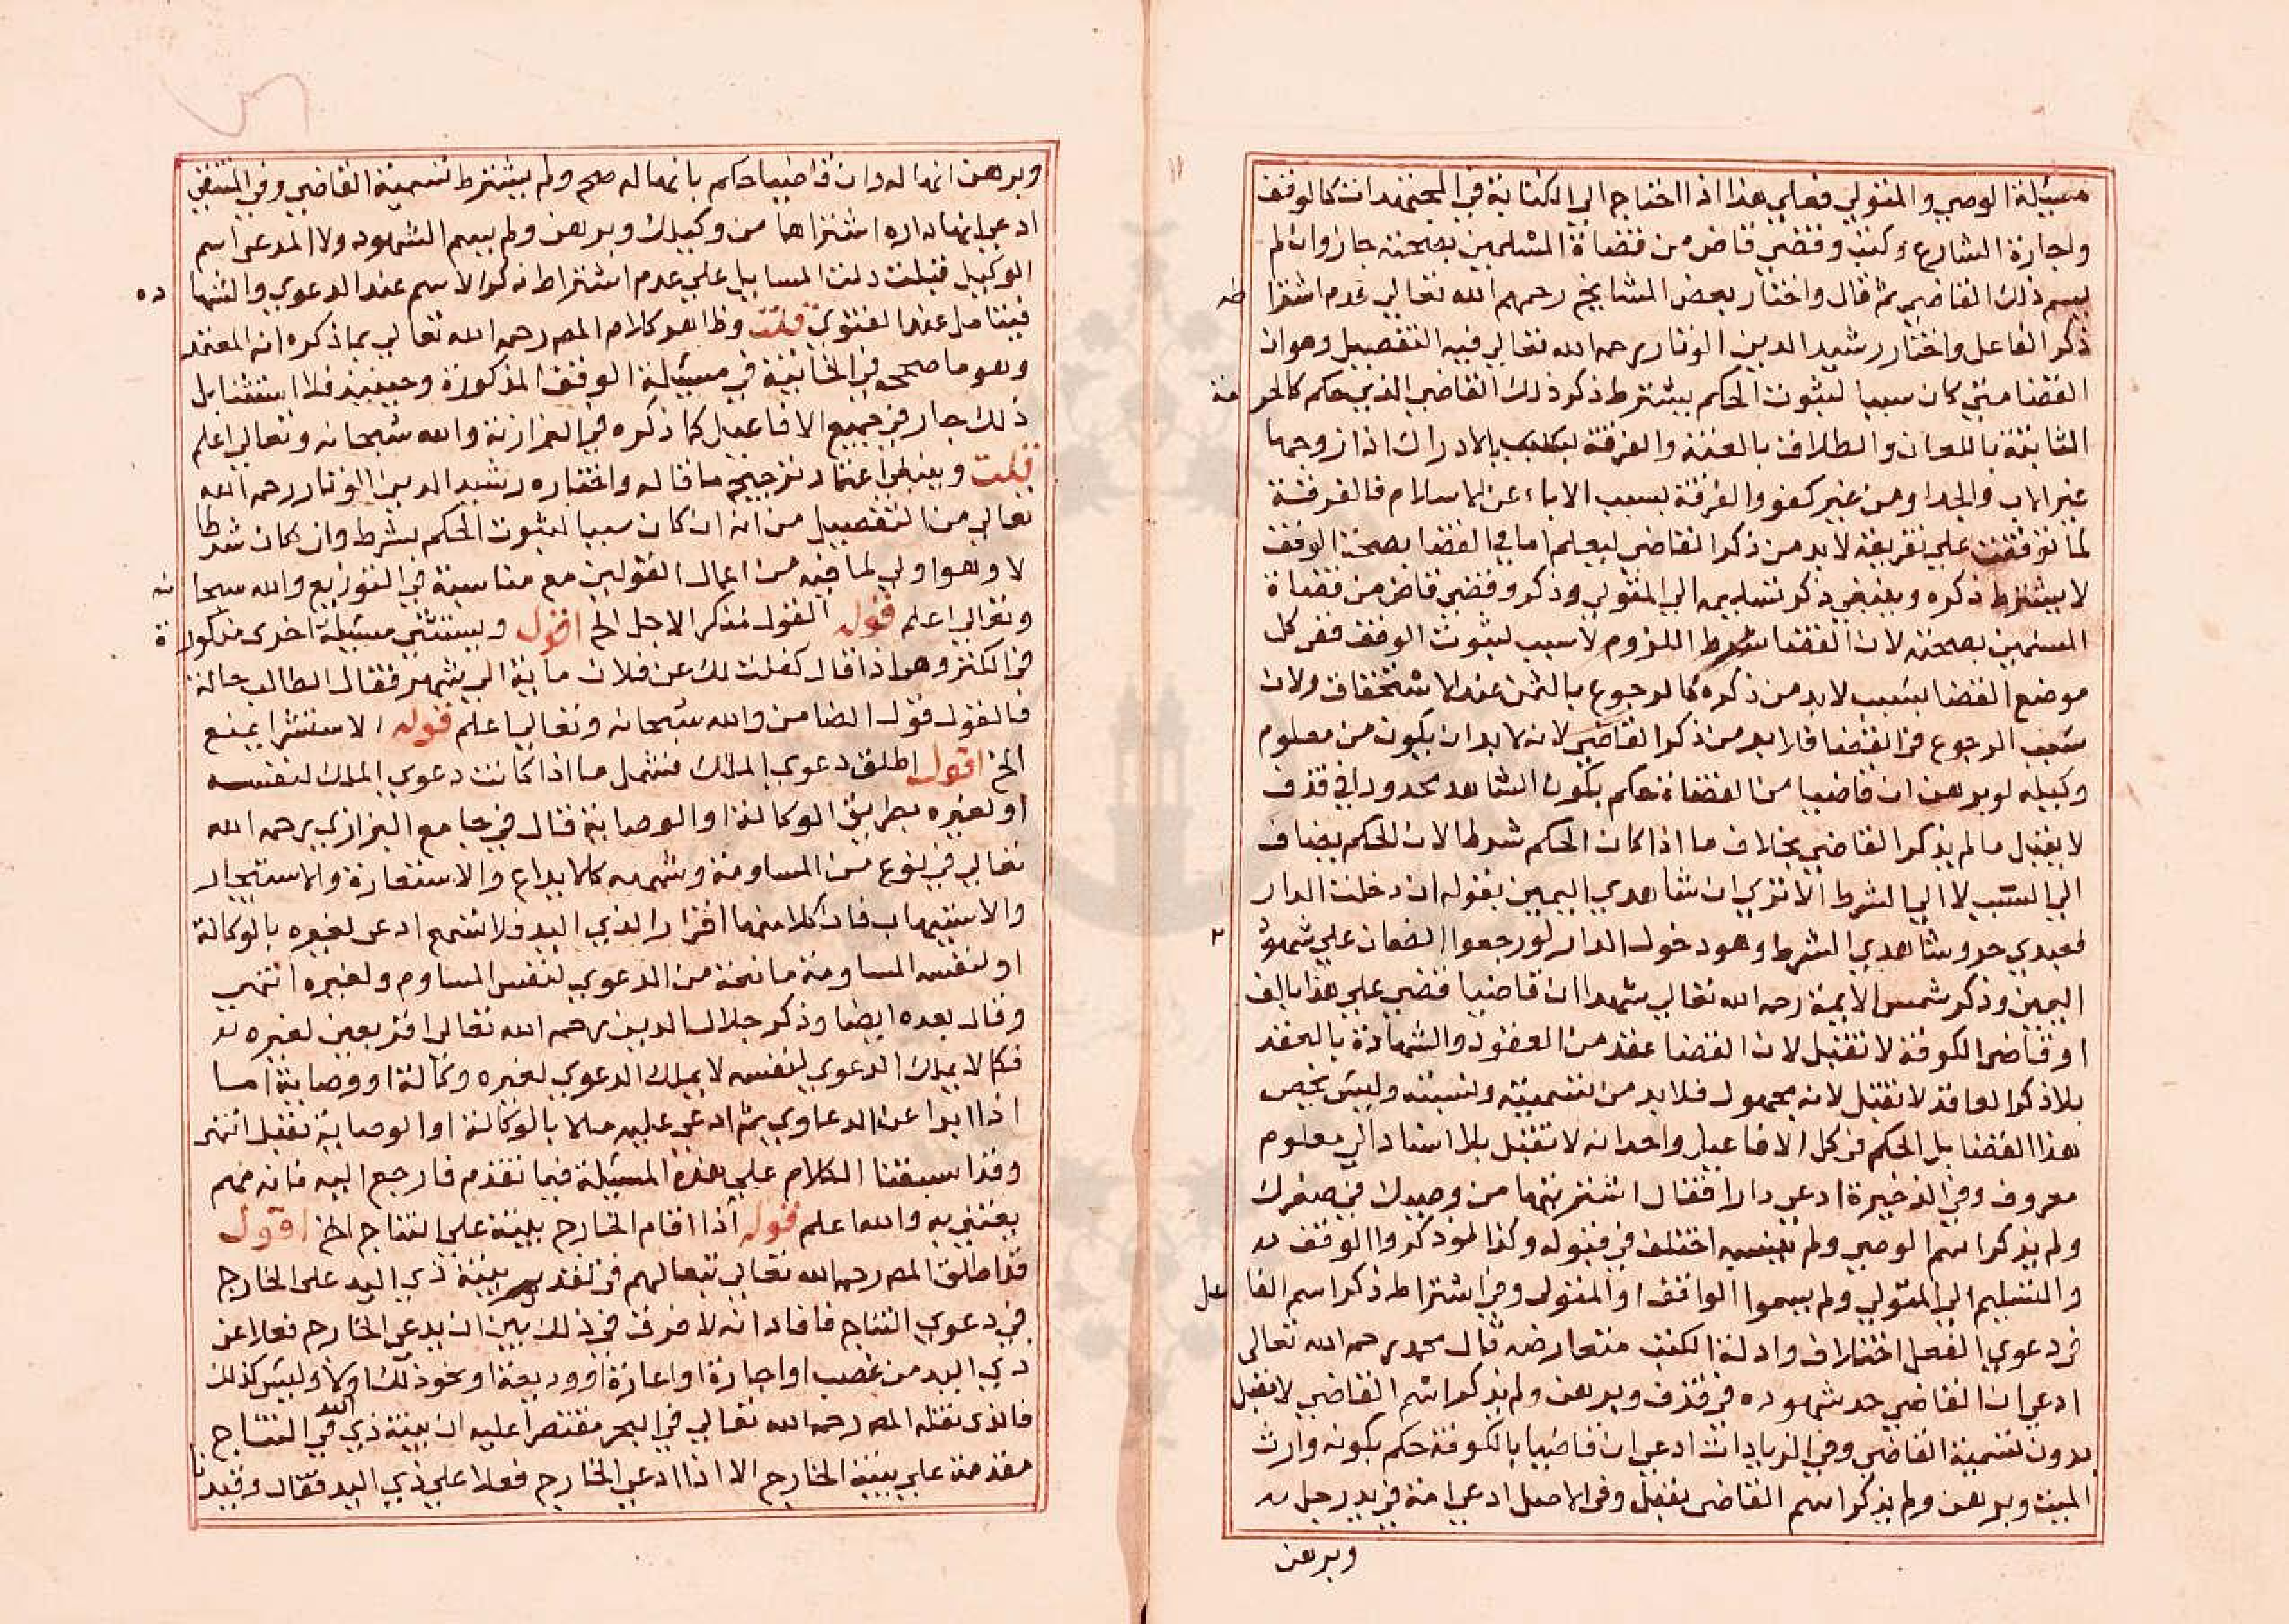 مسئلة الوصي والمتولي فعلي هذا اذا احتاج الي الكتابة في المجتهدات كالوقف
واجارة المشاع وكتب وقضي قاض من قضاة المسلمين بصحته جاز وان لم
يسم ذلك القاضي ثم قال واختار بعض المشايخ رحمهم الله تعالي عدم اشترا طه
ذكر الفاعل واختار رشيد الدين الوتار رحمه الله تعالي فيه التفصيل وهو ان
القضا متي كان سببا لثبوت الحكم يشترط ذكر ذلك القاضي الذي حكم كالحر مة
الثابتة باللعان والطلاق بالعنة والفرقة بالادراك اذا زوجها
غير الاب والجد او من غير كفو والفرقة بسبب الاباء عن الاسلام فالفرقة
لما توقفت علي تفريقه لابد من ذكر القاضي ليعلم اما في القضا بصحة الوقف
لا يشترط ذكره وينبغي ذكر تسليمه الي المتولي وذكر وقضي قاض من قضاة
المسلمين بصحته لان القضا شرط اللزوم لا سبب لثبوت الوقف ففي كل
موضع القضا بسبب لابد من ذكره كالرجوع بالثمن عند الاستحقاق ولان
سبب الرجوع في القضا فلا بد من ذكر القاضي لانه لابد ان يكون من معلوم
وكيله لو برهن ان قاضيا من القضاة حكم بكون الشاهد محدودا في قذف
لا يقبل ما لم يذكر القاضي بخلاف ما اذا كان الحكم شرطا لان الحكم يضاف
الي السبب لا الي الشرط الا تري ان شاهدي اليمين بقوله ان دخلت الدار
فعبدي حر وشاهدي الشرط وهو دخول الدار لو رجعوا الضمان علي شهود
اليمين وذكر شمس الايمة رحمه الله تعالي شهدا ان قاضيا قضي علي هذا بالف
او قاضي الكوفة لا تقبل لان القضا عقد من العقود والشهادة بالعقد
بلا ذكر العاقد لا تقبل لانه مجهول فلا بد من تسميته ونسبته وليس يخص
هذا القضا بل الحكم في كل الافاعيل واحد انه لا تقبل بلا اسناد الي معلوم
معروف وفي الذخيرة ادعي دارا فقال اشتريتها من وصيك في صغرك
ولم يذكر اسم الوصي ولم ينسبه اختلف في قبوله وكذا لو ذكروا الوقف
والتسليم الي المتولي ولم يسموا الواقف او المتولي وفي اشتراط ذكر اسم الفا عل
في دعوي الفعل اختلاف وادلة الكتب متعارضة قال محمد رحمه الله تعالي
ادعي ان القاضي حد شهوده في قذف وبرهن ولم يذكر اسم القاضي لا تقبل
بدون تسمية القاضي وفي الزيادات ادعي ان قاضيا بالكوفة حكم بكونه وارث
الميت وبرهن ولم يذكر اسم القاضي يقبل وفي الاصل ادعي امة في يد رجل
وبرهن
وبرهن انها له وان قاضيا حكم بانها له صح ولم يشترط تسمية القاضي وفي المنتقي
ادعي انها داره اشتراها من وكيلك وبرهن ولم يسم الشهود ولا المدعي اسم
الوكيل قبلت دلت المسايل علي عدم اشتراط ذكر الاسم عند الدعوي والشها دة
فيتامل عند الفتوي قلت وظاهر كلام المص رحمه الله تعالي بما ذكره انه المعتمد
وهو ما صححه في الخانية في مسئلة الوقف المذكورة وحينئذ فلا استثنا بل
ذلك جار في جميع الافاعيل كما ذكره في البزازية والله سبحانه وتعالي اعلم
قلت وينبغي اعتماد ترجيح ما قاله واختاره رشيد الدين الوتار رحمه الله
تعالي من التفصيل من انه ان كان سببا لثبوت الحكم يشرط وان كان شرطا
لا وهو اولي لما فيه من اعمال القولين مع مناسبة في التوزيع والله سبحا نه
وتعالي اعلم قوله القول لمنكر الاجل الخ اقول ويستثني مسئلة اخري مذكور ة
في الكنز وهي اذا قال كفلت لك عن فلان ماية الي شهر فقال الطالب حالة
فالقول قول الضامن والله سبحانه وتعالي اعلم قوله الاستشرا يمنع
الخ اقول اطلق دعوي الملك فشمل ما اذا كانت دعوي الملك لنفسه
او لغيره بطريق الوكالة او الوصاية قال في جامع البزازي رحمه الله
تعالي في نوع من المساومة وشهرته كالايداع والاستعارة والاستيجار
والاستيهاب فان كلا منها اقرار لذي اليد فلا تسمع ادعي لغيره بالوكالة
او لنفسه المساومة مانعة من الدعوي لنفس المساوم ولغيره انتهي
وقال بعده ايضا وذكر جلال الدين رحمه الله تعالي اقر بعين لغيره
فكما لا يملك الدعوي لنفسه لا يملك الدعوي لغيره وكالة او وصاية اما
اذا ابرا عن الدعاوي ثم ادعي عليه مالا بالوكالة او الوصاية تقبل انتهي
وقد اسبقنا الكلام علي هذه المسئلة فيما تقدم فارجع اليه فانه مهم
يعتني به والله اعلم قوله اذا اقام الخارج بينة علي النتاج الخ اقول
قد اطلق المص رحمه الله تعالي تبعا لهم في تقديم بينة ذي اليد علي الخارج
في دعوي النتاج فافاد انه لا فرق في ذلك بين ان يدعي الخارج فعلا علي
ذي اليد من غصب او اجارة او اعارة او وديعة او نحو ذلك او لا وليس كذلك
فالذي نقله المص رحمه الله تعالي في البحر مقتصرا عليه ان بينة ذي اليد في النتاج
مقدمة علي بينة الخارج الا اذا ادعي الخارج فعلا علي ذي اليد فقال وقيدنا